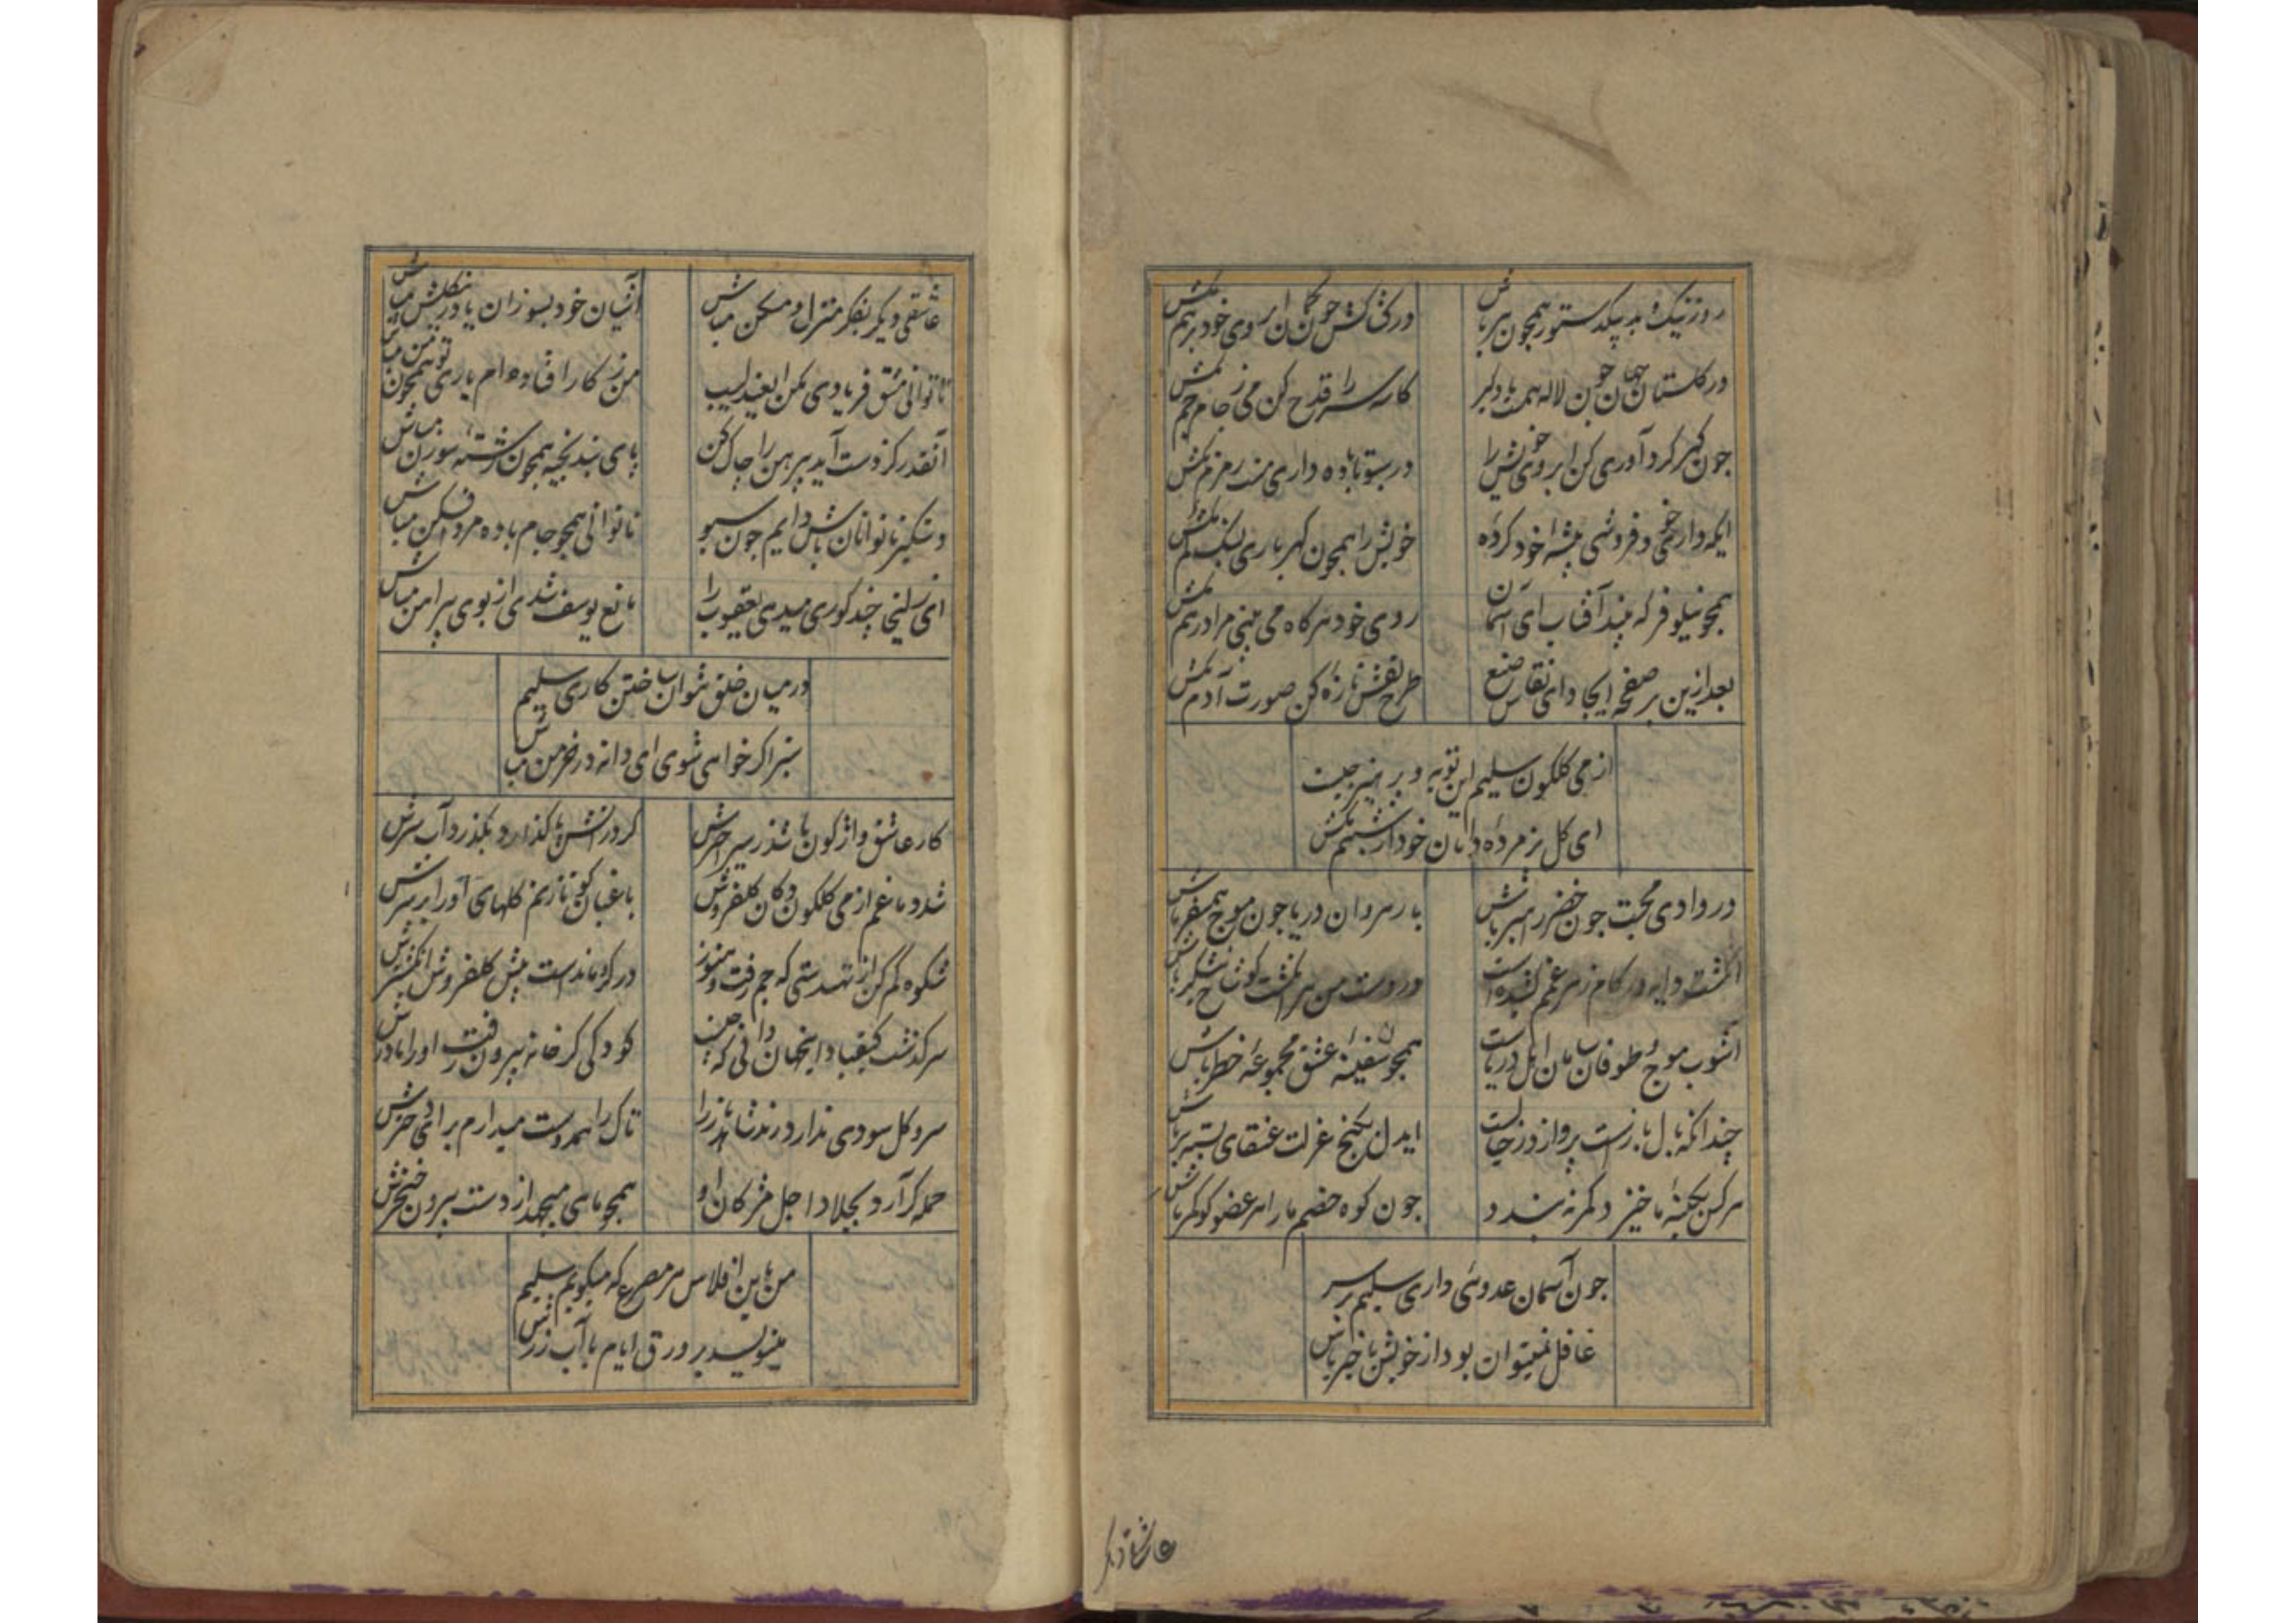 روز نیک و بد بیک دستور همچون تیر باش
در کشاکش چون کمان ابروی خود برهم مکش
در گلستان جهان چون لاله همت دلبر
کاسه سر را قدح کن می ز جام جم مکش
چون گهر گردآوری کن ابروی خویش را
در سبو تا باده داری منت زمزم مکش
ایکه دایم خودفروشی پیشه خود کرده
خویش را همچون گهر باری بسنگ کم مکش
همچو نیلوفر که بیند آفتاب ای آسمان
روی خود هرگاه می بینی مرا درهم مکش
بعد ازین بر صفحه ایجاد ای نقاش صنع
طرح نقش تازه کن صورت آدم مکش
از می گلگون سلیم این توبه و پرهیز چیست
ای گل پژمرده دامان خود از شبنم مکش
در وادی محبت چون خضر راهبر باش
با رهروان دریا چون موج همسفر باش
انگشت دایه در کام زهر غمم فشانده است
در دست من هر انگشت گو شاخ نیشکر باش
آشوب موج و طوفان سامان اهل دریاست
همچو سفینه عشق مجموعه خطر باش
چندانکه بال بازست پرواز در خجالت
ایدل بکنج عزلت عنقای بسته پر باش
هرکس بکینه ما خیزد کمر نبندد
چون کوه خصم ما را هر عضو گو کمر باش
چون آسمان عدوئی داری سلیم بر سر
غافل نمیتوان بود از خویش باخبر باش
عاشقی دیگر
عاشقی دیگر بفکر منزل و مسکن مباش
آشیان خود بسوزان یا درین گلشن مباش
ناتوانی مشق فریادی بکن ای عندلیب
من ز کار افتاده ام باری تو همچون من مباش
آنقدر کز دست آید پیرهن را چاک کن
پای بند بخیه همچون رشته سوزن مباش
دستگیر ناتوانان باش دایم چون سبو
تا توانی همچو جام باده مردافکن مباش
ای زلیخا چند کوری میدهی یعقوب را
مانع یوسف شدی از بوی پیراهن مباش
در میان خلق نتوان ساختن کاری سلیم
سبز اگر خواهی شوی ای دانه در خرمن مباش
کار عاشق واژگون باشد ز سیر اخترش
گر در آتش پا گذارد بگذرد آب از سرش
شد دماغم از می گلگون دکان گلفروش
باغبان کو تا زنم گلهای او را بر سرش
شکوه کم کن از تهیدستی که جم رفت و هنوز
در گرو ماندست پیش گلفروش انگشترش
سرگذشت کیقباد اینجهان دانی که چیست
کودکی کز خانه بیرون رفت او را مادرش
سرو گل سودی ندارد رند شاهدباز را
تاک را هم دوست میدارم برای دخترش
حمله گر آرد بجلاد اجل مژگان او
همچو ماهی میجهد از دست بیرون خنجرش
من باین افلاس هر مصرع که میگویم سلیم
مینویسد بر ورق ایام با آب زرش